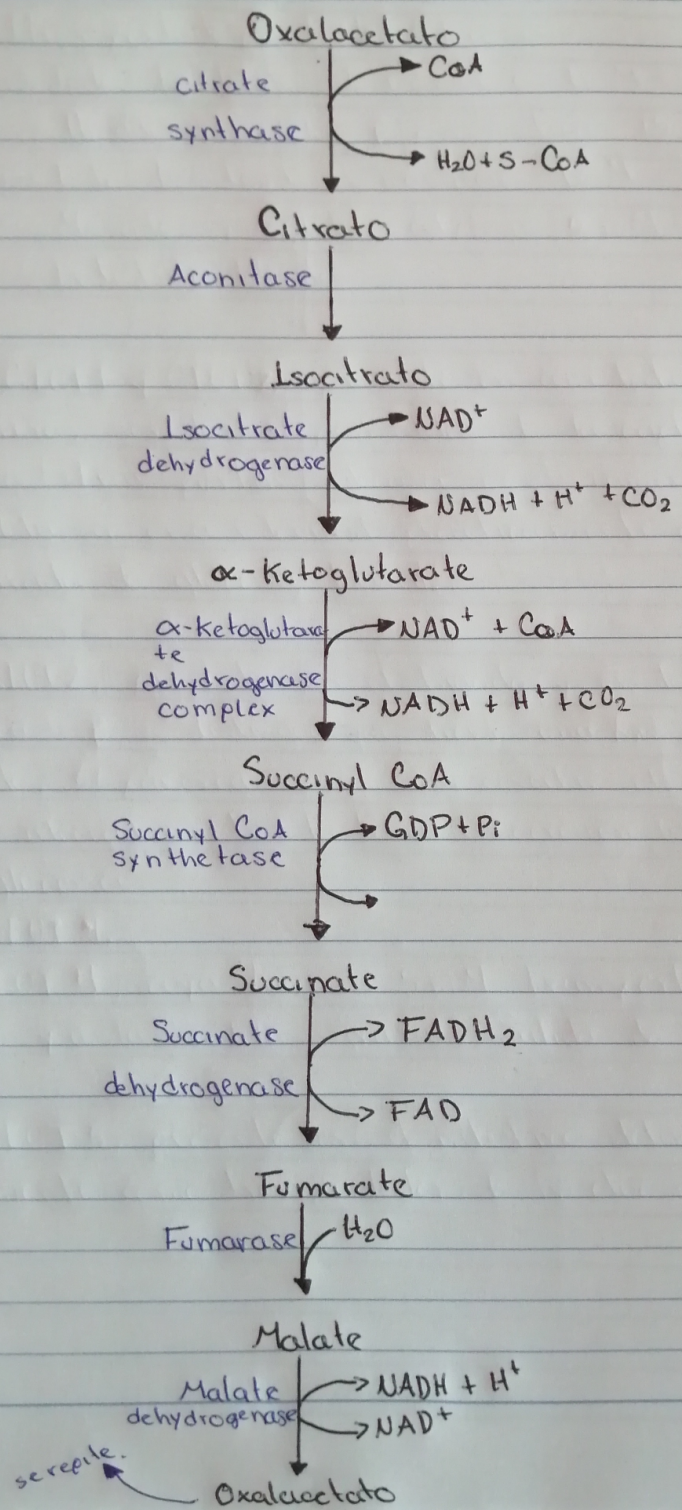 Oxalacetato
CoA
citrate
synthase
H₂O+S-CoA
Citrato
Aconitase
Isocitrato
NAD⁺
Isocitrate
dehydrogenase
NADH + H⁺ + CO₂
α-Ketoglutarate
α-Ketogluta
te
dehydrogenase
complex
NAD⁺ + CoA
NADH + H⁺ + CO₂
Succinyl CoA
GDP+Pi
Succinyl CoA
synthetase
Succinate
Succinate
FADH₂
dehydrogenase
FAD
Fumarate
H₂O
Fumarase
Malate
NADH + H⁺
Malate
dehydrogenase
NAD⁺
se repite.
Oxalacetato